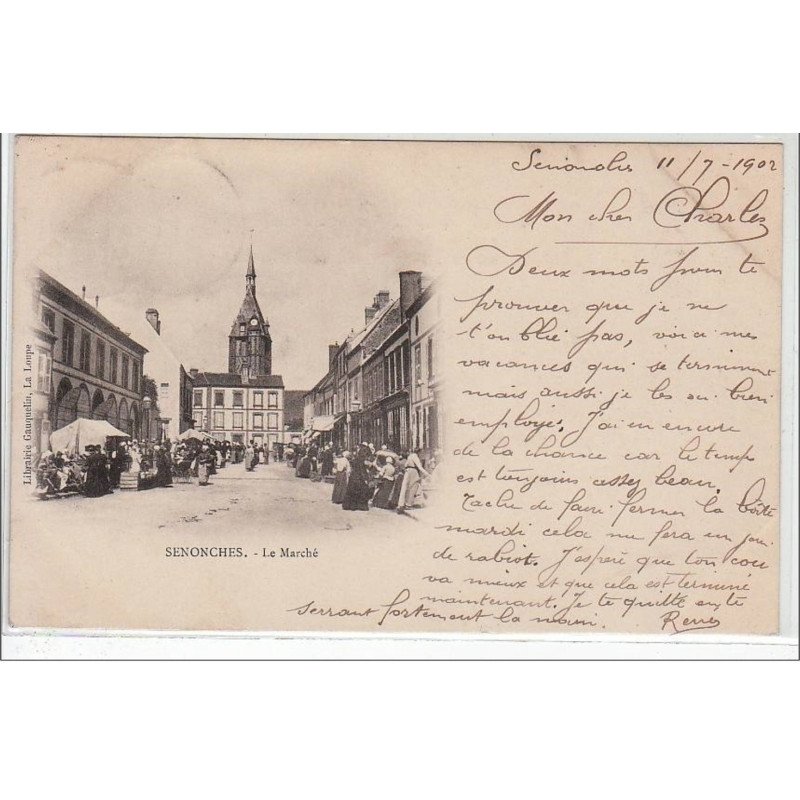 Senonches 11/7-1902
Mon cher Charles
Deux mots pour te
prouver que je ne
t'oublie pas, voici mes
vacances qui se terminent
mais aussi je les ai bien
employés. J'ai eu encore
de la chance car le temps
est toujours assez beau.
Tache de faire fermer la boîte
mardi cela me fera un jour
de rabiot. J'espère que ton cou
va mieux et que cela est terminé
maintenant. Je te quitte en te
serrant fortement la main.
Librairie Gauquelin, La Loupe
SENONCHES. - Le Marché